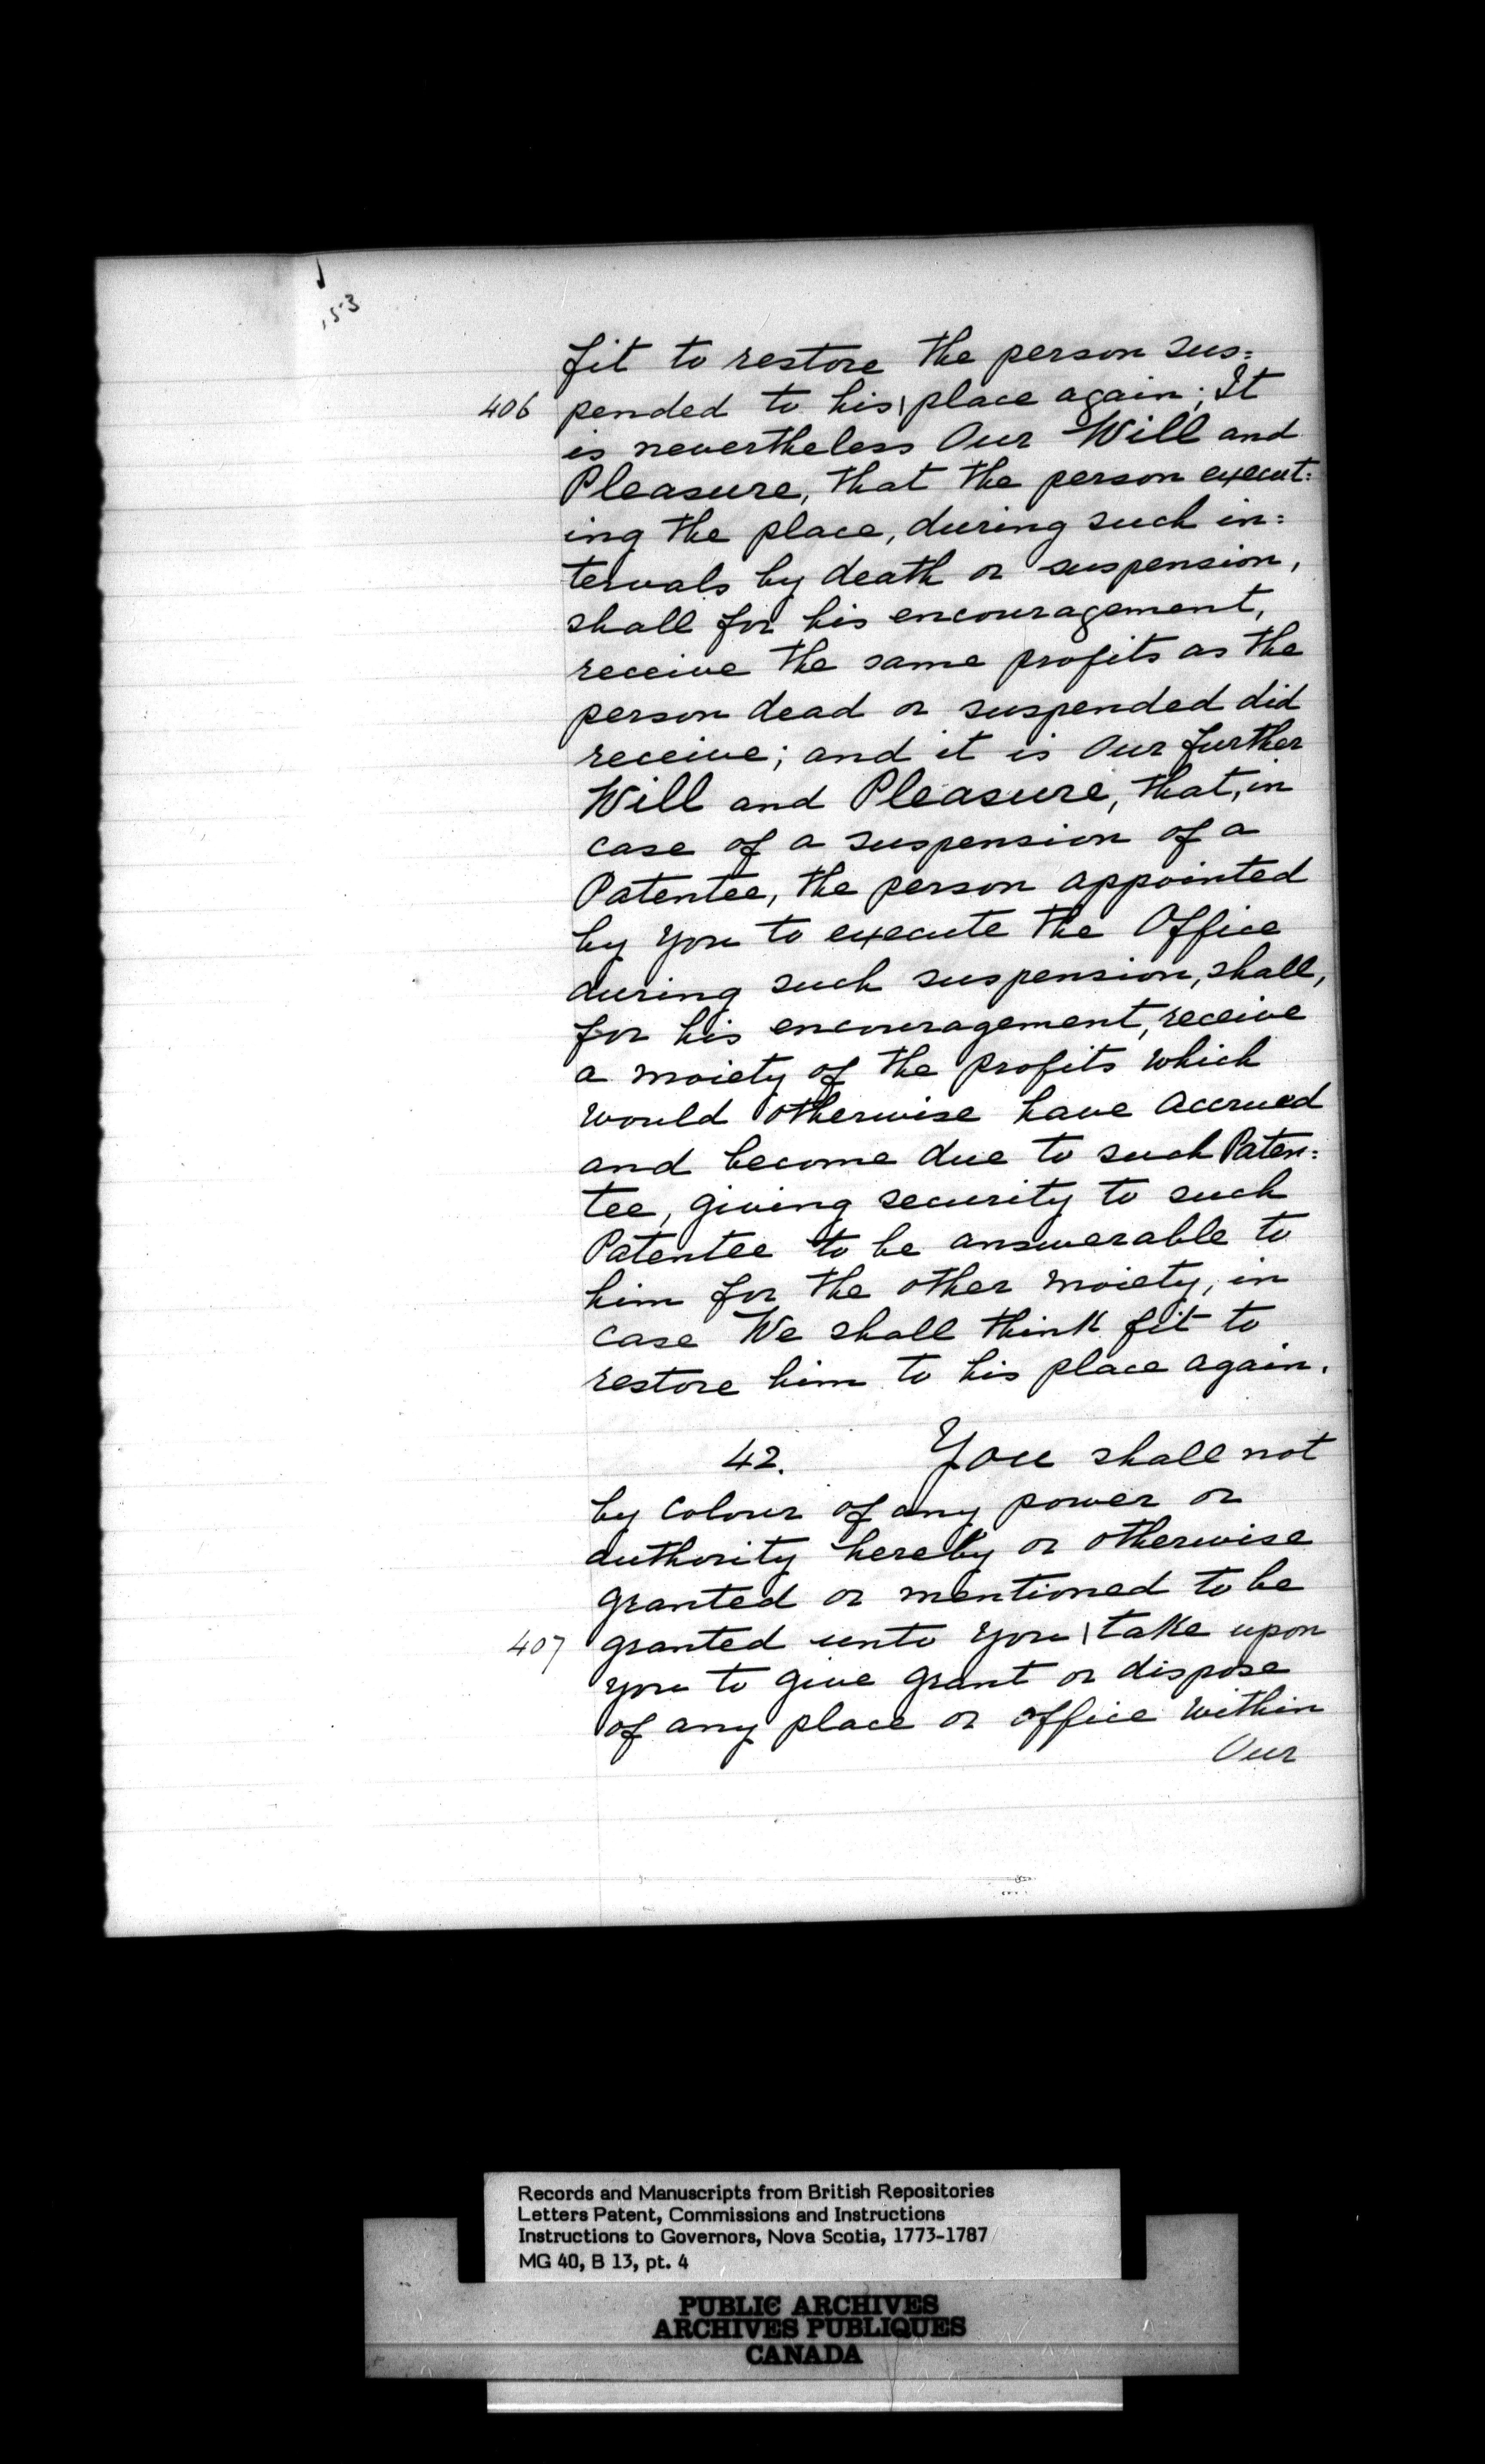 153
fit to restore the person sus=
406 pended to his\ place again; It
is nevertheless Our Will and
Pleasure, that the person execut=
ing the place, during such in=
tervals by death or suspension,
shall for his encouragement,
receive the same profits as the
person dead or suspended did
receive; and it is Our further
Will and Pleasure, that, in
case of a suspension of a
Patentee, the person appointed
by you to execute the Office
during such suspension, shall,
for his encouragement, receive
a moiety of the profits which
would otherwise have accrued
and become due to such Paten=
tee, giving security to such
Patentee to be answerable to
him for the other moiety, in
case We shall think fit to
restore him to his place again.
42. You shall not
by colour of any power or
authority hereby or otherwise
granted or mentioned to be
407 granted unto you \ take upon
you to give grant or dispose
of any place or office within
Our
Records and Manuscripts from British Repositories
Letters Patent, Commissions and Instructions
Instructions to Governors, Nova Scotia, 1773-1787
MG 40, B 13, pt. 4
PUBLIC ARCHIVES
ARCHIVES PUBLIQUES
CANADA